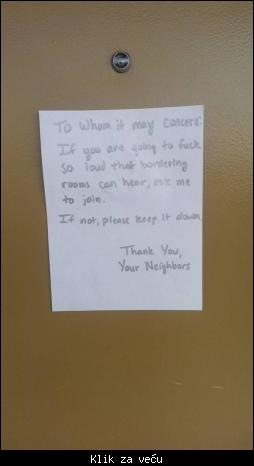 To Whom it may concern:
If you are going to fuck
so loud that bordering
rooms can hear, ask me
to join.
If not, please keep it down.
Thank You,
Your Neighbors
Klik za veću